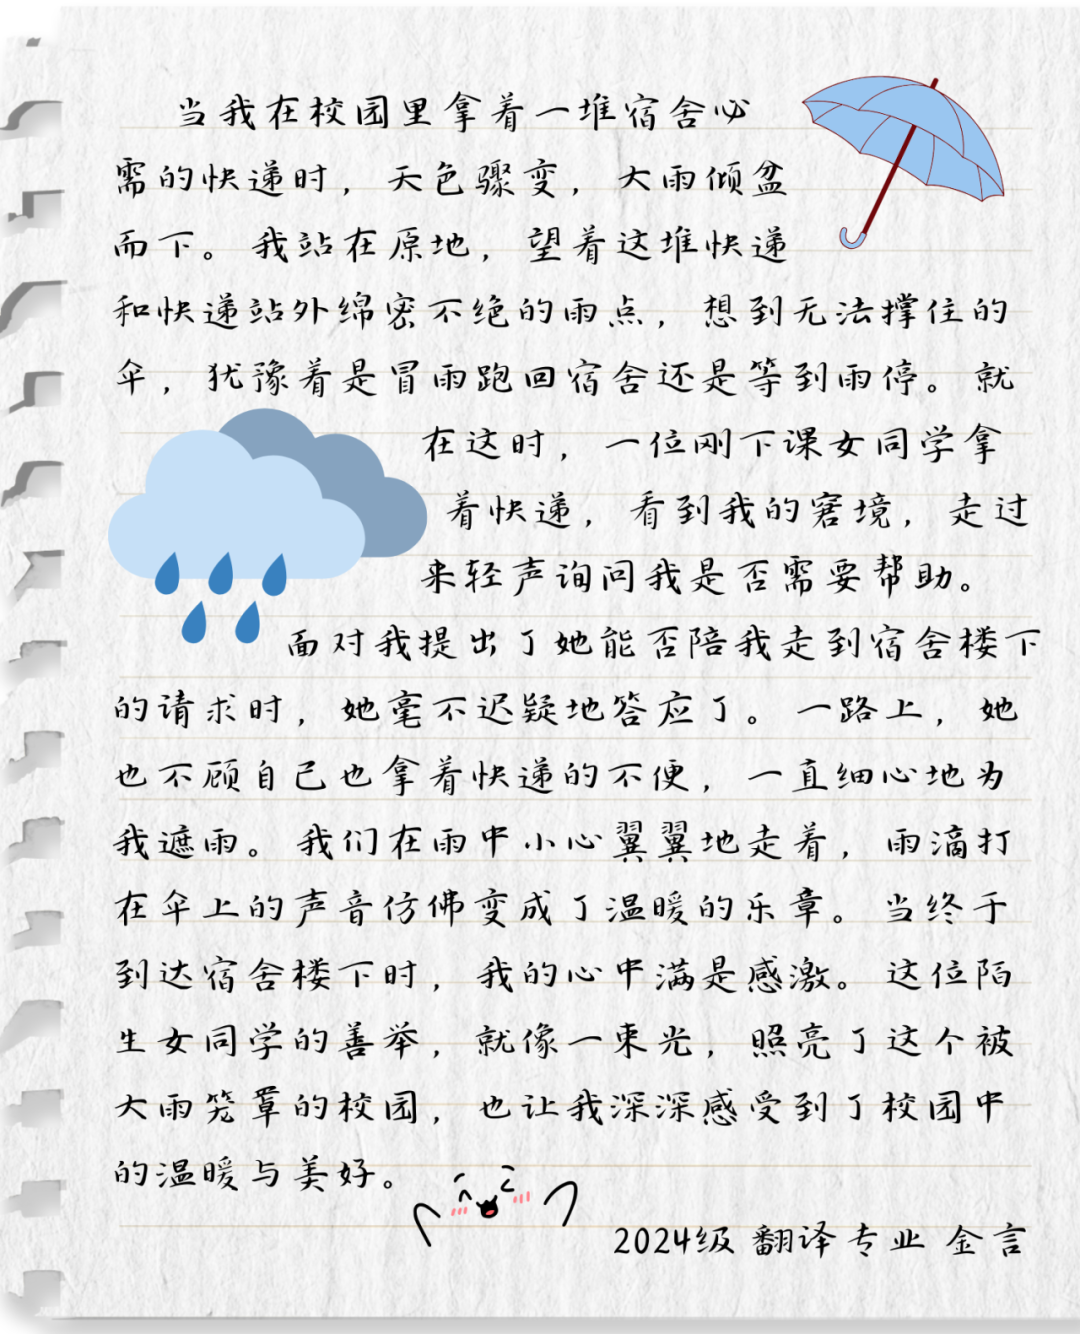 当我在校园里拿着一堆宿舍必
需的快递时，天色骤变，大雨倾盆
而下。我站在原地，望着这堆快递
和快递站外绵密不绝的雨点，想到无法撑住的
伞，犹豫着是冒雨跑回宿舍还是等到雨停。就
在这时，一位刚下课女同学拿
着快递，看到我的窘境，走过
来轻声询问我是否需要帮助。
面对我提出了她能否陪我走到宿舍楼下
的请求时，她毫不迟疑地答应了。一路上，她
也不顾自己也拿着快递的不便，一直细心地为
我遮雨。我们在雨中小心翼翼地走着，雨滴打
在伞上的声音仿佛变成了温暖的乐章。当终于
到达宿舍楼下时，我的心中满是感激。这位陌
生女同学的善举，就像一束光，照亮了这个被
大雨笼罩的校园，也让我深深感受到了校园中
的温暖与美好。
2024级 翻译专业 金言